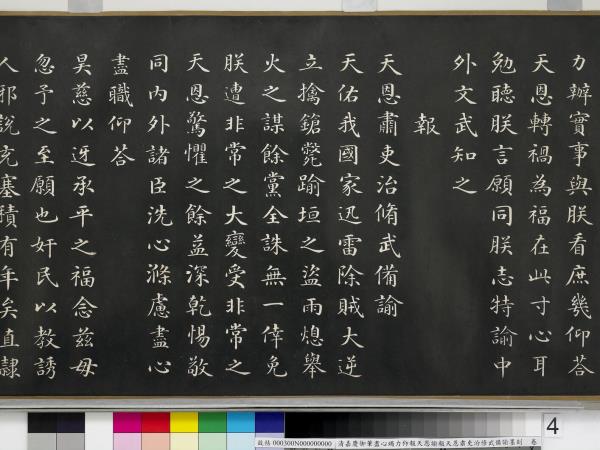 力辦實事與朕看庶幾仰荅
天恩轉禍為福在此寸心耳
勉聽朕言願同朕志特諭中
外文武知之
報
天恩肅吏治脩武備諭
天佑我國家迅雷除賊大逆
立擒鎗斃踰垣之盜雨熄舉
火之謀餘黨全誅無一倖免
朕遭非常之大變受非常之
天恩驚懼之餘益深乾惕敬
同內外諸臣洗心滌慮盡心
盡職仰荅
昊慈以迓承平之福念茲毋
忽予之至願也奸民以教誘
人邪說充塞積有年矣直隸
4
故帖 000300N000000000 清嘉慶御筆盡心竭力仰報天恩諭報天恩肅吏治修武備諭墨刻 卷